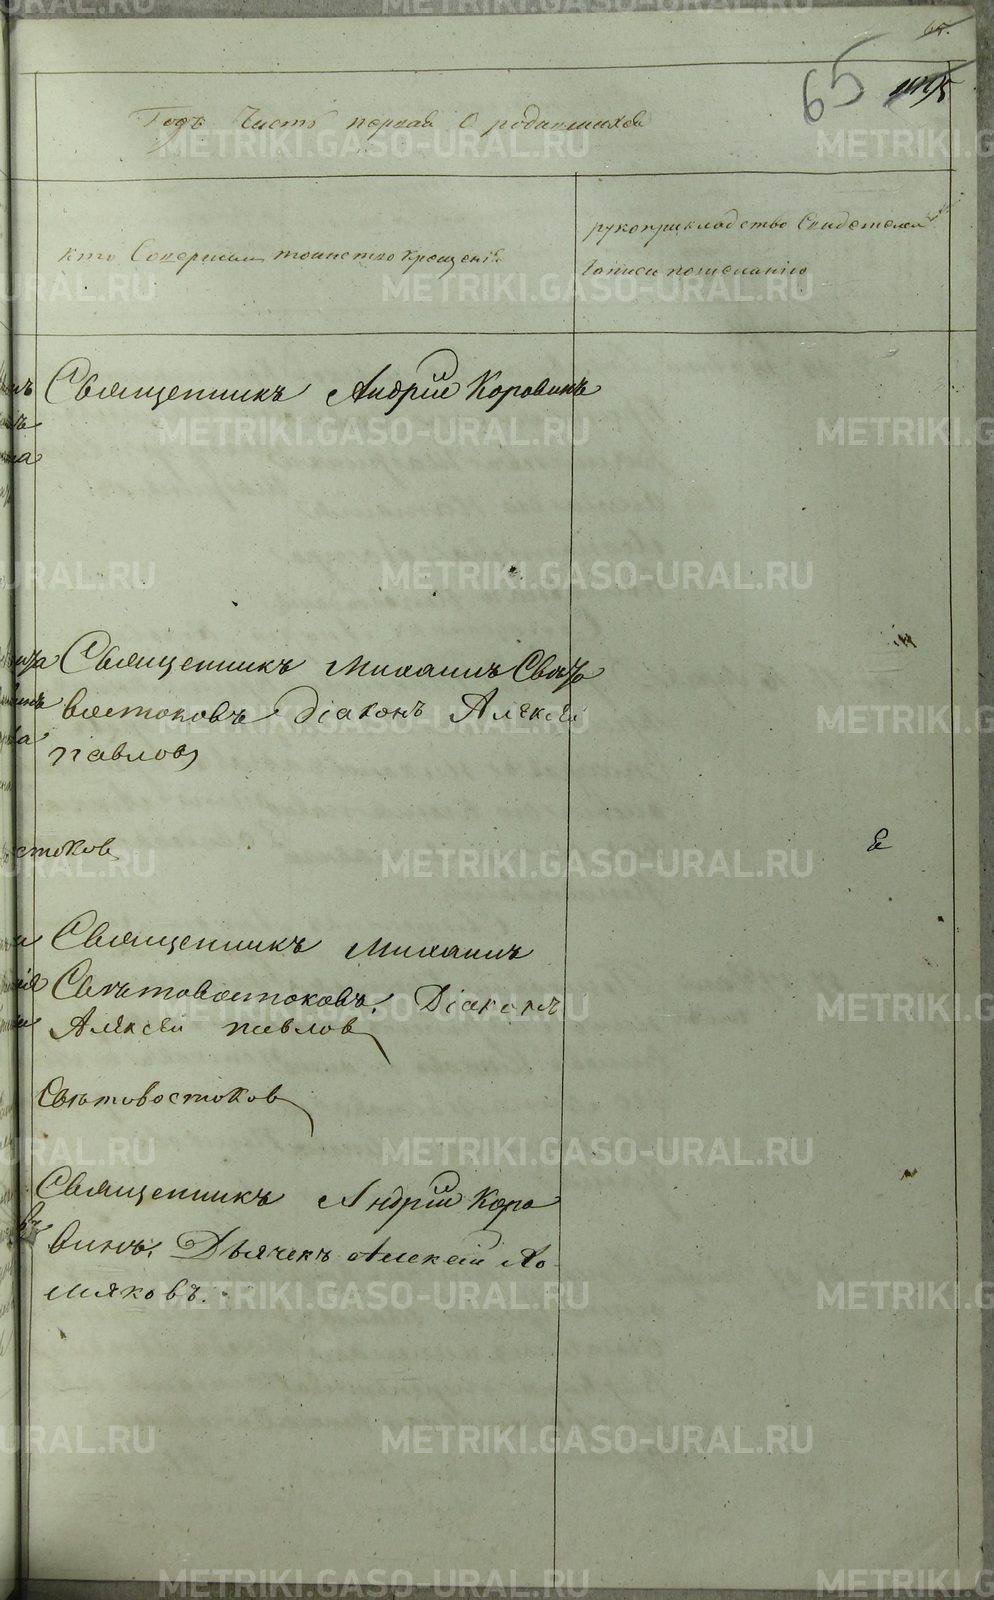 65
Годъ Часть первая О родившихся
кто Совершал таинство крещенія
рукоприкладство Свидетелей
записи по желанію
Священникъ Андрій Коровинъ
Священникъ Михаилъ Свѣто
востоковъ Діаконъ Алѣксѣй
павлов
стоков
Священникъ Михаилъ
Свѣтовостоковъ, Діаконъ
Алѣксѣй павлов
Свѣтовостоков
Священникъ Андрій Коро
винъ, Дьячекъ Алексѣй
мяковъ.
METRIKI.GASO-URAL.RU